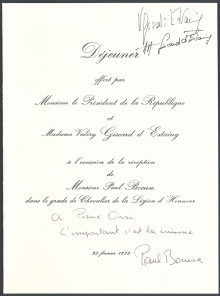 Déjeuner
offert par
Monsieur le Président de la République
et
Madame Valéry Giscard d'Estaing
à l'occasion de la réception
de
Monsieur Paul Bocuse
dans le grade de Chevalier de la Légion d'Honneur
A Pierre
L'important c'est la
25 février 1975
Paul Bocuse